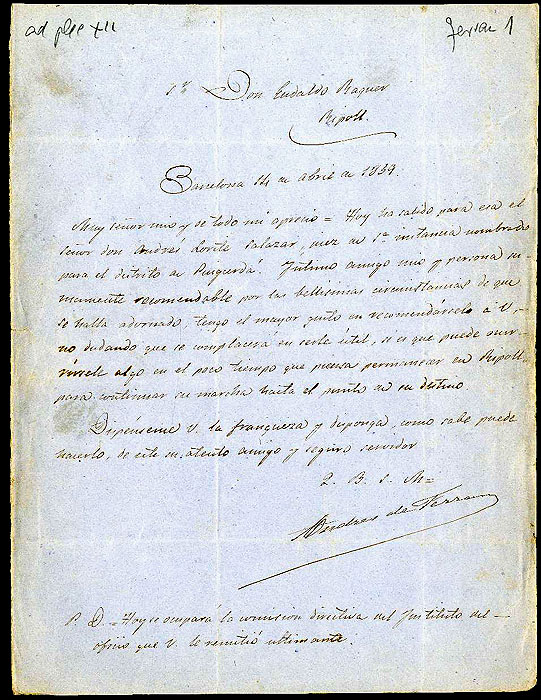 ad plec XII
Ferran 1
Sr. Don Eudaldo Raguer
Ripoll.
Barcelona 14 de Abril de 1859.
Muy señor mio y de todo mi aprecio = Hoy ha salido para esa el
señor don Andrés Lorite Salazar, juez de 1ª instancia nombrado
para el distrito de Puigcerda. Íntimo amigo mio y persona su-
mamente recomendable por las bellisimas circunstancias de que
se halla adornado, tengo el mayor gusto en recomendárselo á V,
no dudando que se complacerá en serle útil, si es que puede ocur-
rirsele algo en el poco tiempo que piensa permanecer en Ripoll
para continuar su marcha hasta el punto de su destino.
Dispénseme V. la franqueza y disponga, como sabe puede
hacerlo, de este su atento amigo y seguro servidor
Q. B. S. M=
Andres de Ferran
P. D. = Hoy se ocupará la comision directiva del Instituto del
oficio que V. le remitió ultimante.